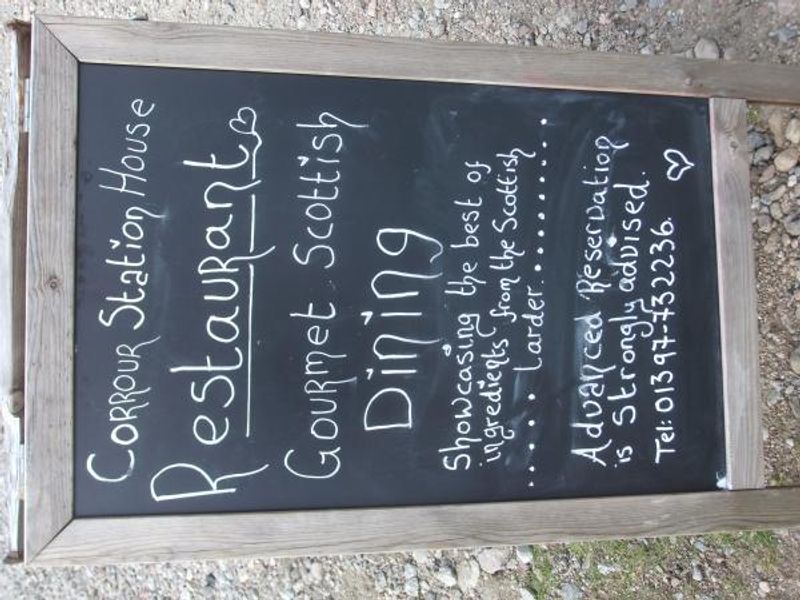 Corrour Station House
Restaurant
Gourmet Scottish
Dining
Showcasing the best of
ingredients from the Scottish
..... Larder..........
Advanced Reservation
is strongly advised.
Tel: 01397-732236.